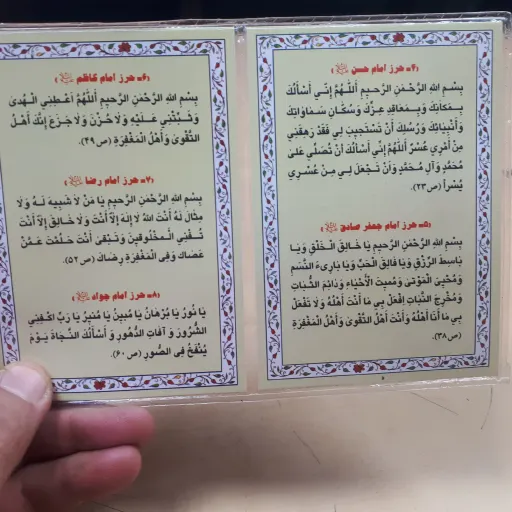 ۴ـ حرز امام حسن
بِسْمِ اللهِ الرَّحْمٰنِ الرَّحیمِ أَللّٰهُمَّ إِنّی أَسْأَلُكَ
بِمَكانِكَ وَبِمَعاقِدِ عِزِّكَ وَسُكّانِ سَماواتِكَ
وَأَنْبِیائِكَ وَرُسُلِكَ أَنْ تَسْتَجیبَ لی فَقَدْ رَهِقَنی
مِنْ أَمْری عُسْرٌ أَللّٰهُمَّ إِنّی أَسْأَلُكَ أَنْ تُصَلِّیَ عَلیٰ
مُحَمَّدٍ وَآلِ مُحَمَّدٍ وَأَنْ تَجْعَلَ لی مِنْ عُسْری
یُسْراً (ص ۲۳).
۵ـ حرز امام جعفر صادق
بِسْمِ اللهِ الرَّحْمٰنِ الرَّحیمِ یا خالِقَ الْخَلْقِ وَیا
باسِطَ الرِّزْقِ وَیا فالِقَ الْحَبِّ وَیا بارِیءَ النَّسَمِ
وَمُحْیِیَ الْمَوْتیٰ وَمُمیتَ الْأَحْیاءِ وَدائِمَ الثَّباتِ
وَمُخْرِجَ النَّباتِ إِفْعَلْ بی ما أَنْتَ أَهْلُهُ وَلا تَفْعَلْ
بی ما أَنَا أَهْلُهُ وَأَنْتَ أَهْلُ التَّقْویٰ وَأَهْلُ الْمَغْفِرَةِ
(ص ۳۸).
۶ـ حرز امام کاظم
بِسْمِ اللهِ الرَّحْمٰنِ الرَّحیمِ أَللّٰهُمَّ أَعْطِنِی الْهُدیٰ
وَثَبِّتْنی عَلَیْهِ وَلا حُزْنَ وَلا جَزَعَ إِنَّكَ أَهْلُ
التَّقْویٰ وَأَهْلُ الْمَغْفِرَةِ (ص ۴۹).
۷ـ حرز امام رضا
بِسْمِ اللهِ الرَّحْمٰنِ الرَّحیمِ یا مَنْ لا شَبیهَ لَهُ وَلا
مِثالَ لَهُ أَنْتَ اللهُ لا إِلٰهَ إِلّا أَنْتَ وَلا خالِقَ إِلّا أَنْتَ
تُفْنِی الْمَخْلُوقینَ وَتَبْقیٰ أَنْتَ حَلُمْتَ عَمَّنْ
عَصاكَ وَفِی الْمَغْفِرَةِ رِضاكَ (ص ۵۲).
۸ـ حرز امام جواد
یا نُورُ یا بُرْهانُ یا مُبینُ یا مُنیرُ یا رَبِّ اكْفِنِی
الشُّرُورَ وَ آفاتِ الدُّهُورِ وَ أَسْأَلُكَ النَّجاةَ یَوْمَ
یُنْفَخُ فِی الصُّورِ (ص ۶۰).